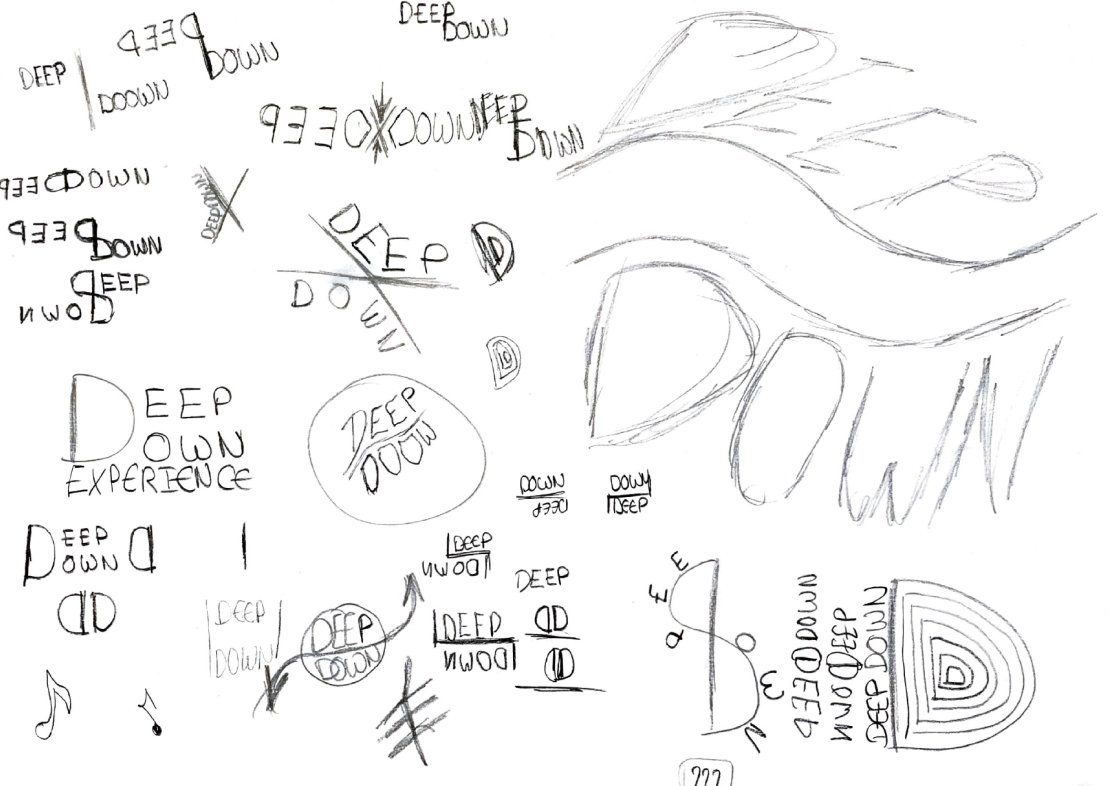 DEEP
DOWN
DEEP
DOWN
DEEP
DOOWN
DEED DOWN
DEEP
DOWN
DEEDDOWN
DEEP
DOWN
DEEP
DOWN
DEEP
DEEP
DOWN
DEEP
DOWN
D
D
DEEP
DOWN
EXPERIENCE
DEEP
DOOW
DOWN
DEEP
DOWN
DEEP
DEEP
DOWN
D
DD
DEEP
DOWN
DEEP
DOWN
DEEP
DOWN
DEEP
DOWN
DEEP
DD
D
DEEP
DOWN
DEED DOWN
DOWN DEEP
DEEP DOWN
D
???